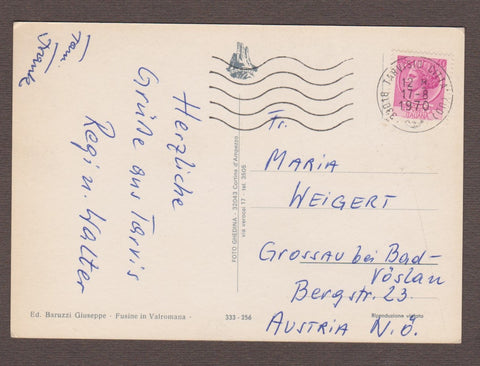 Fam.
Frank
Herzliche
Grüße aus Tarvis
Regi u. Walter
Ed. Baruzzi Giuseppe - Fusine in Valromana -
333-256
FOTO GHEDINA - 32043 Cortina d'Ampezzo
via verocai 17 - tel. 3605
33018 TARVISIO
12
17-8
1970
Fr.
MARIA
WEIGERT
GROSSAU bei BAD-
VÖSLAU
Bergstr. 23
AUSTRIA N.Ö.
Riproduzione vietata